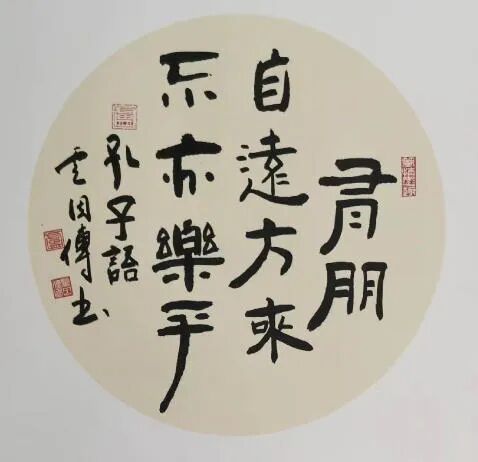 有朋
自遠方來
不亦樂乎
孔子語
雲因傳书